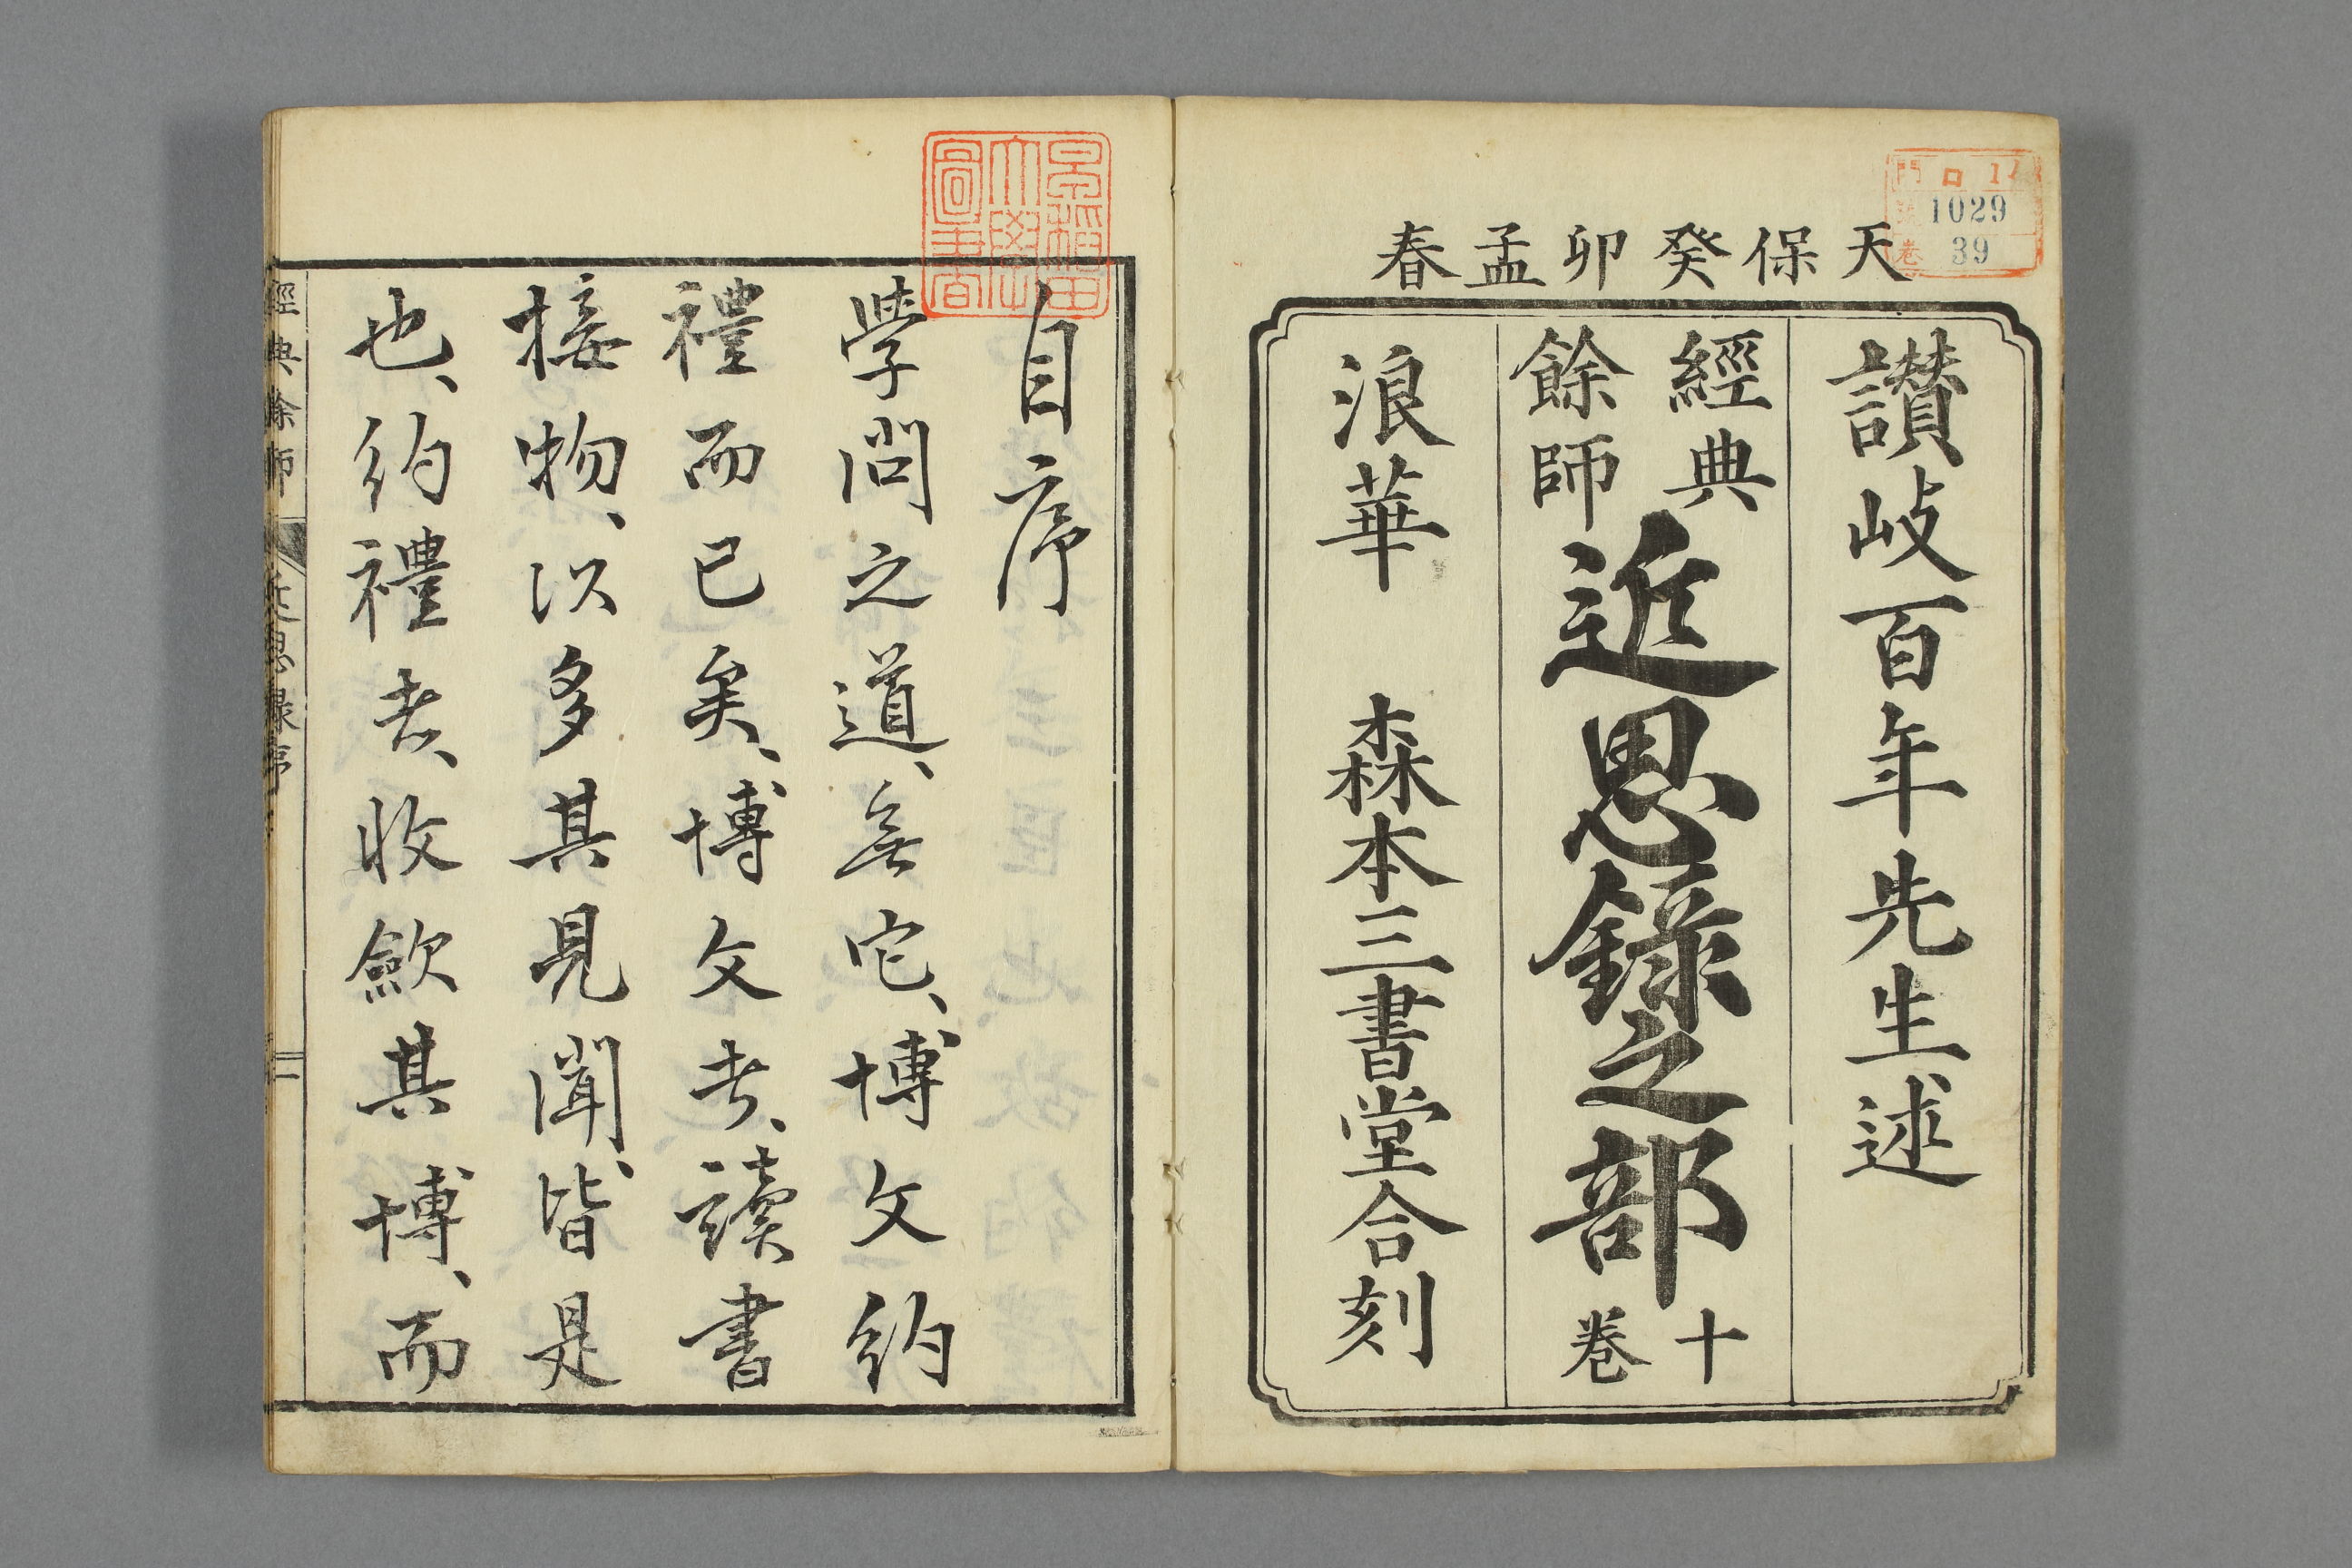 天保癸卯孟春
讃岐百年先生述
經典餘師
近思錄之部
十卷
浪華 森本三書堂合刻
1029
39
早稲田大學圖書
自序
學問之道、無它、博文約
禮而已矣、博文者、讀書
接物、以多其見聞、皆是
也、約禮者、收斂其博、而
經典餘師 近思錄序